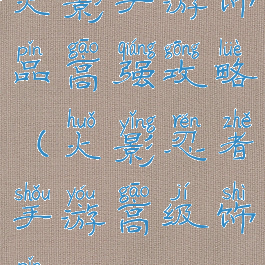 火影手游饰
pǐn gāo qiáng gōng lüè
品高强攻略
huǒ yǐng rěn zhě
（火影忍者
shǒu yóu gāo jí shì
手游高级饰
pǐn